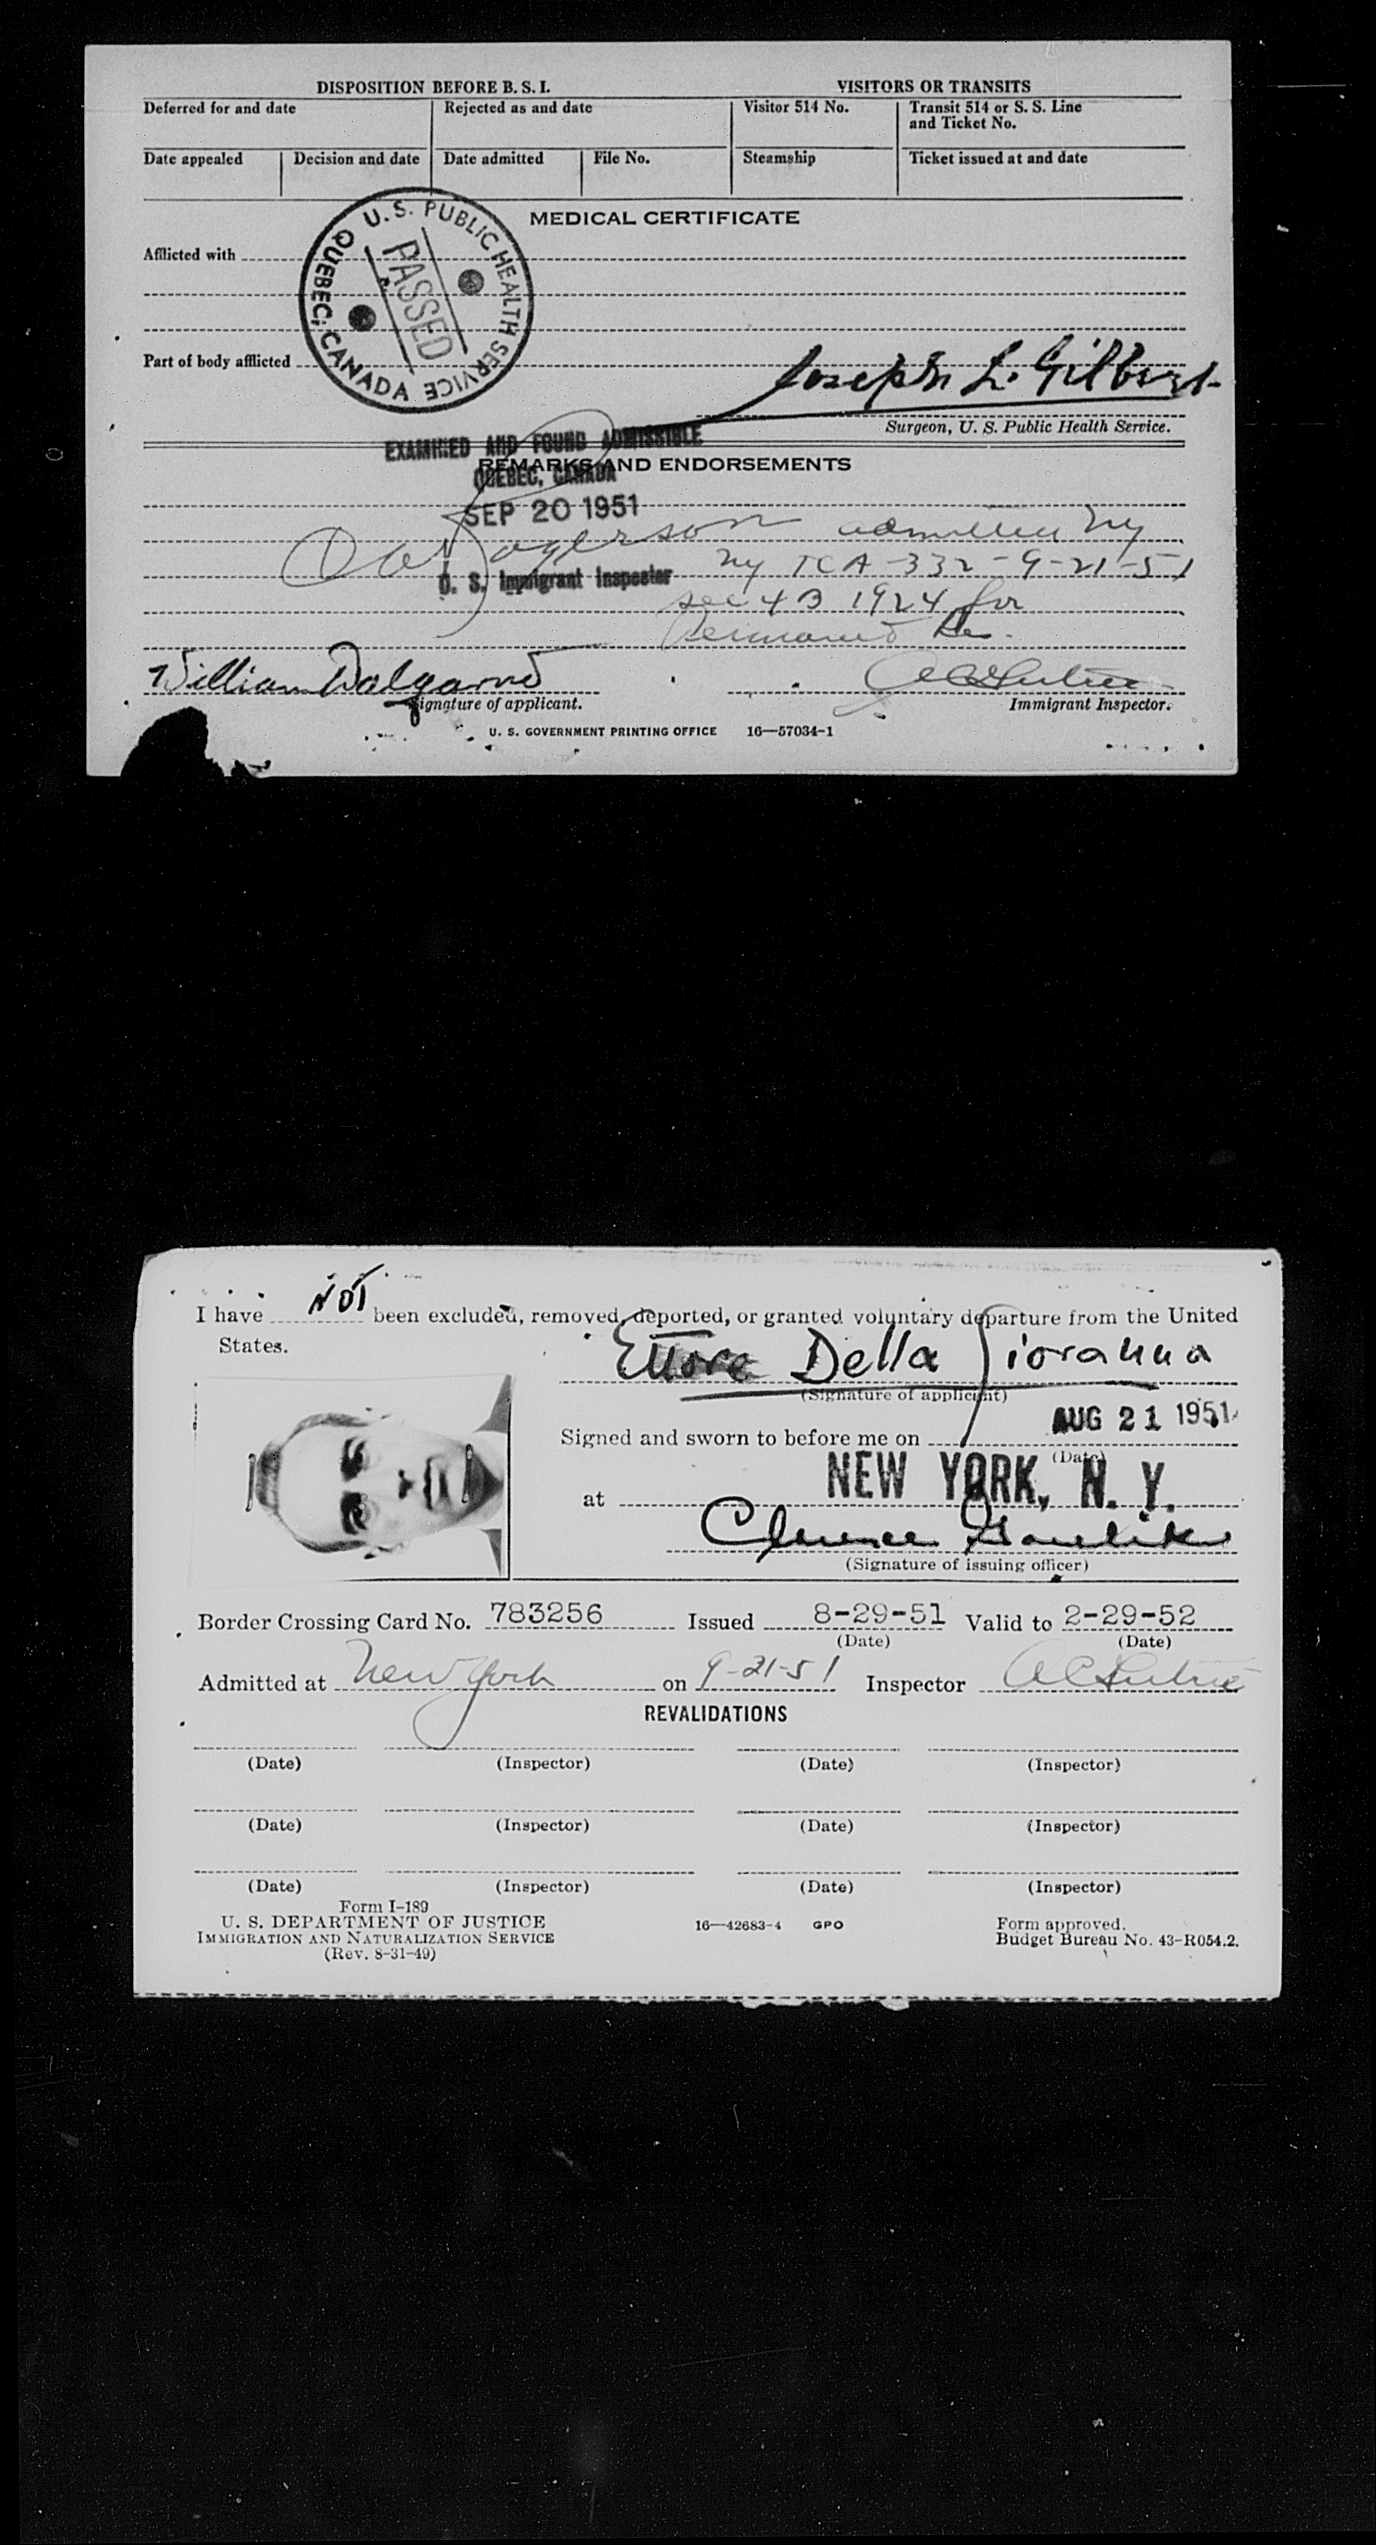 DISPOSITION BEFORE B. S. I. VISITORS OR TRANSITS
Deferred for and date Rejected as and date Visitor 514 No. Transit 514 or S. S. Line
and Ticket No.
Date appealed Decision and date Date admitted File No. Steamship Ticket issued at and date
MEDICAL CERTIFICATE
U. S. PUBLIC HEALTH SERVICE
QUEBEC, CANADA
PASSED
Afflicted with
Part of body afflicted
Joseph L. Gilbert
Surgeon, U. S. Public Health Service.
EXAMINED AND FOUND ADMISSIBLE
REMARKS AND ENDORSEMENTS
QUEBEC, CANADA
SEP 20 1951
admitted Ny
Ny TCA-332-9-21-51
U. S. Immigrant Inspector
sec 4 B 1924 for
William Dalgarno
Signature of applicant. Immigrant Inspector.
U. S. GOVERNMENT PRINTING OFFICE 16—57034-1
I have NOT been excluded, removed, deported, or granted voluntary departure from the United
States.
Ettore Della Giovanna
(Signature of applicant)
Signed and sworn to before me on AUG 21 1951
(Date)
at NEW YORK, N. Y.
Clarence
(Signature of issuing officer)
Border Crossing Card No. 783256 Issued 8-29-51 Valid to 2-29-52
(Date) (Date)
Admitted at New York on 9-21-51 Inspector
REVALIDATIONS
(Date) (Inspector) (Date) (Inspector)
(Date) (Inspector) (Date) (Inspector)
(Date) (Inspector) (Date) (Inspector)
Form I-189
U. S. DEPARTMENT OF JUSTICE 16—42683-4 GPO Form approved.
IMMIGRATION AND NATURALIZATION SERVICE Budget Bureau No. 43-R054.2.
(Rev. 8-31-49)